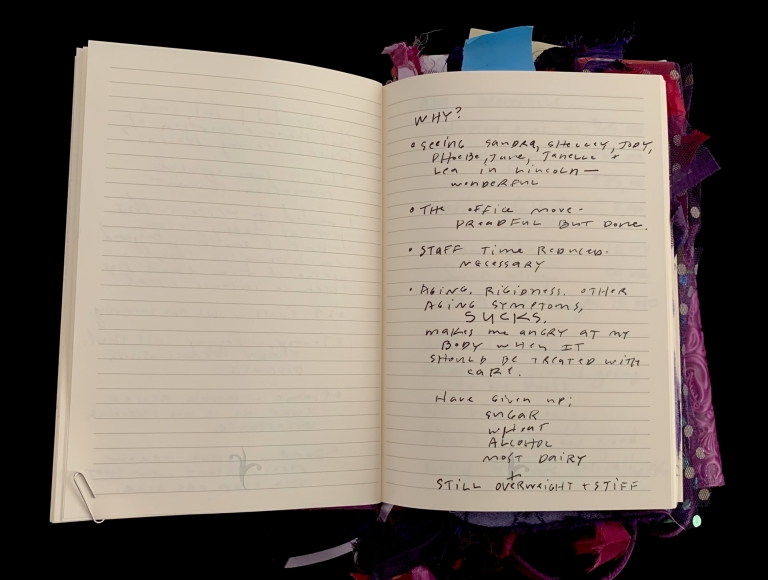 WHY?
• Seeing Sandra, Shelley, Jody,
Phoebe, June, Janelle +
Lea in Lincoln —
wonderful
• The office move -
Dreadful but done.
• Staff time reduced.
necessary
• Aging. Rigidness. Other
aging symptoms,
SUCKS.
makes me angry at my
body when it
should be treated with
care.
Have given up:
sugar
wheat
Alcohol
most dairy
+
Still overweight + stiff